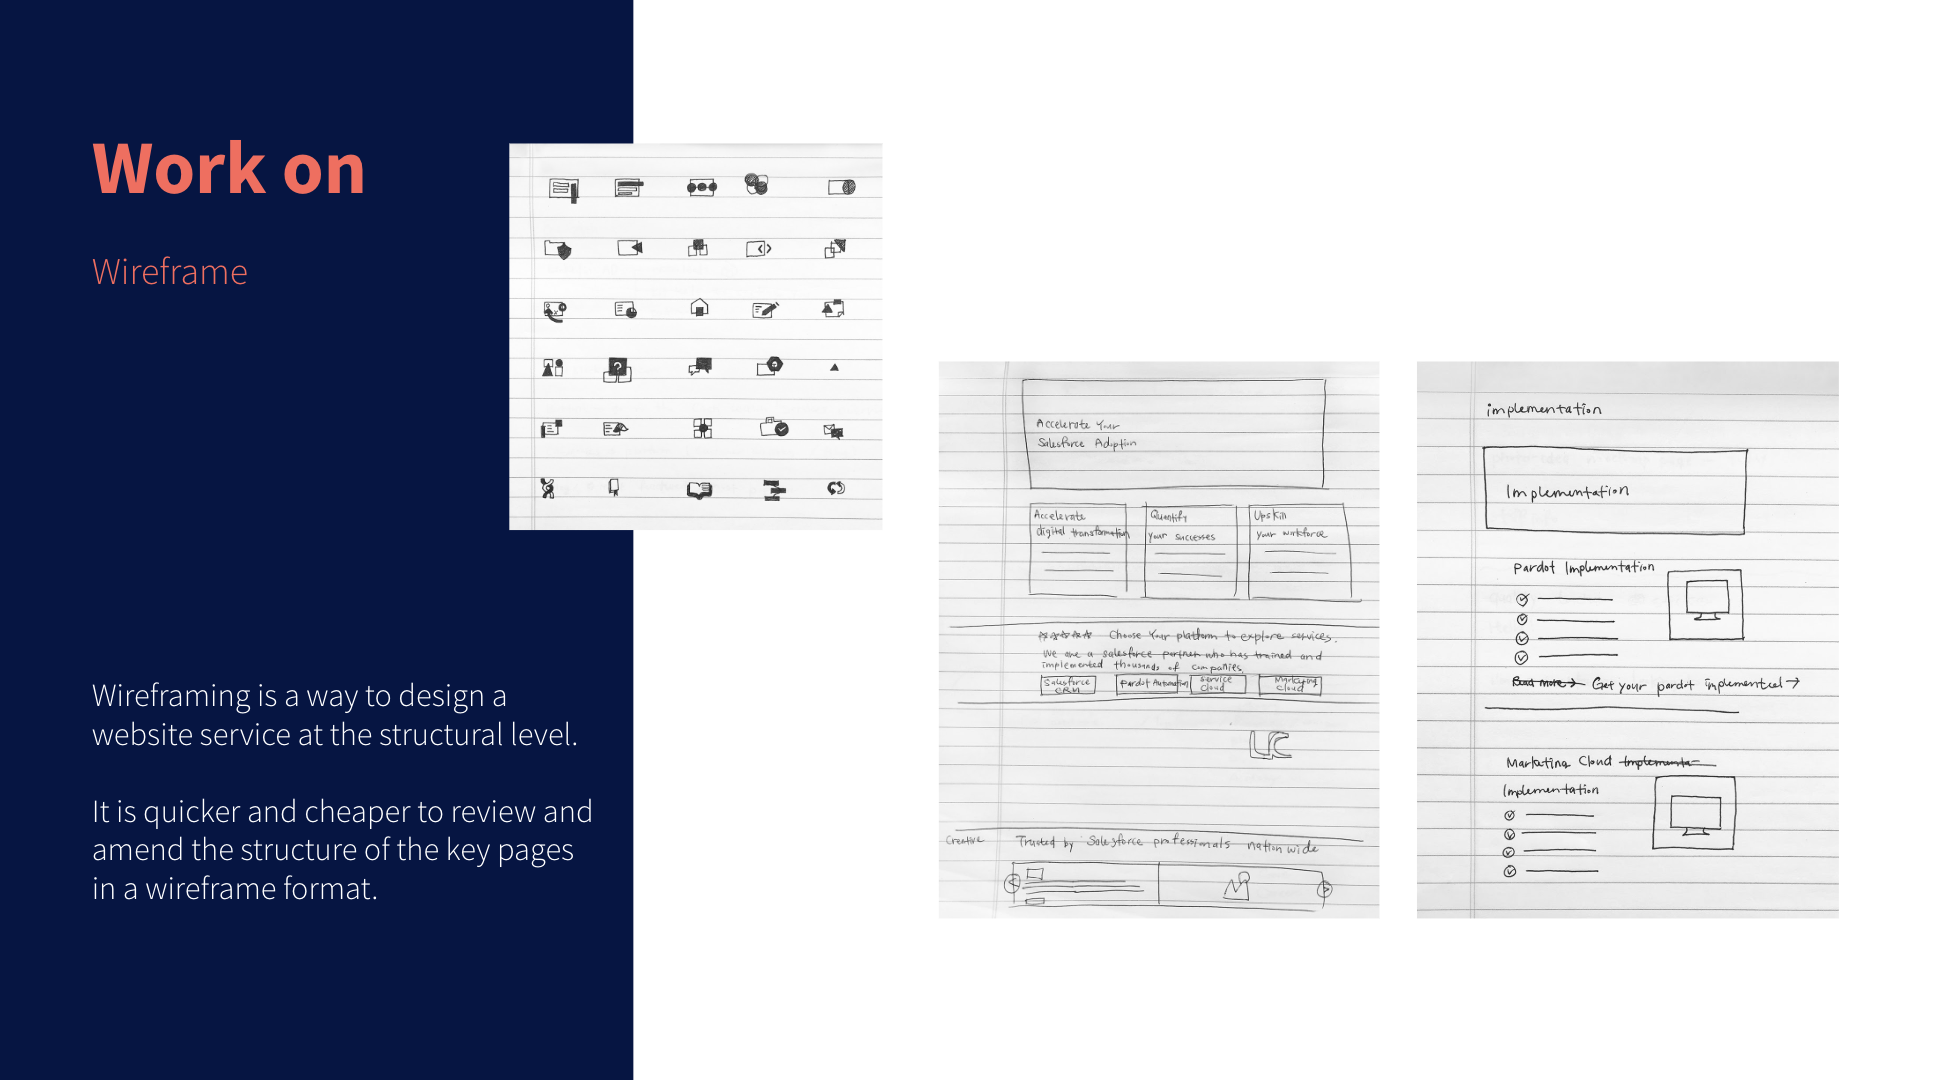 Work on
Wireframe
Wireframing is a way to design a
website service at the structural level.
It is quicker and cheaper to review and
amend the structure of the key pages
in a wireframe format.
?
Accelerate Your
Salesforce Adoption
Accelerate
digital transformation
Quantify
your successes
Upskill
your workforce
Choose Your platform to explore services.
We are a salesforce partner who has trained and
implemented thousands of companies
Salesforce
CRM
Pardot Automation
Service
Cloud
Marketing
Cloud
Creative
Trusted by Salesforce professionals nation wide
implementation
Implementation
Pardot Implementation
Read more → Get your pardot implemented →
Marketing Cloud
Implementation